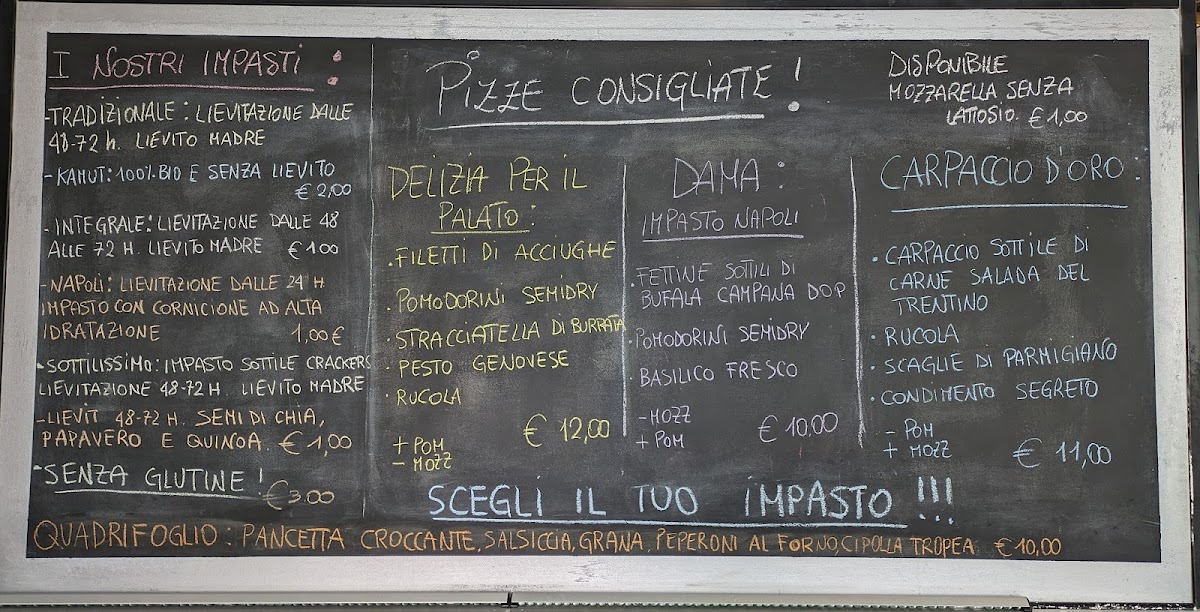 I NOSTRI IMPASTI :
-TRADIZIONALE: LIEVITAZIONE DALLE
48-72 h. LIEVITO MADRE
- KAMUT: 100% BIO E SENZA LIEVITO
€ 2,00
- INTEGRALE: LIEVITAZIONE DALLE 48
ALLE 72 H. LIEVITO MADRE € 1,00
-NAPOLI: LIEVITAZIONE DALLE 24 H
IMPASTO CON CORNICIONE AD ALTA
IDRATAZIONE 1,00 €
•SOTTILISSIMO: IMPASTO SOTTILE CRACKERS
LIEVITAZIONE 48-72 H. LIEVITO MADRE
-LIEVIT 48-72 H. SEMI DI CHIA,
PAPAVERO E QUINOA. € 1,00
•SENZA GLUTINE!
€ 3.00
PIZZE CONSIGLIATE!
DISPONIBILE
MOZZARELLA SENZA
LATTOSIO. € 1,00
DELIZIA PER IL
PALATO:
•FILETTI DI ACCIUGHE
•POMODORINI SEMIDRY
•STRACCIATELLA DI BURRATA
• PESTO GENOVESE
• RUCOLA
€ 12,00
+ POM
- MOZZ
DAMA:
IMPASTO NAPOLI
•FETTINE SOTTILI DI
BUFALA CAMPANA DOP
•POMODORINI SEMIDRY
•BASILICO FRESCO
-MOZZ
+ POM
€ 10,00
CARPACCIO D'ORO:
• CARPACCIO SOTTILE DI
CARNE SALADA DEL
TRENTINO
• RUCOLA
• SCAGLIE DI PARMIGIANO
• CONDIMENTO SEGRETO
- POM
+ MOZZ € 11,00
SCEGLI IL TUO IMPASTO !!!
QUADRIFOGLIO: PANCETTA CROCCANTE, SALSICCIA, GRANA, PEPERONI AL FORNO, CIPOLLA TROPEA € 10,00